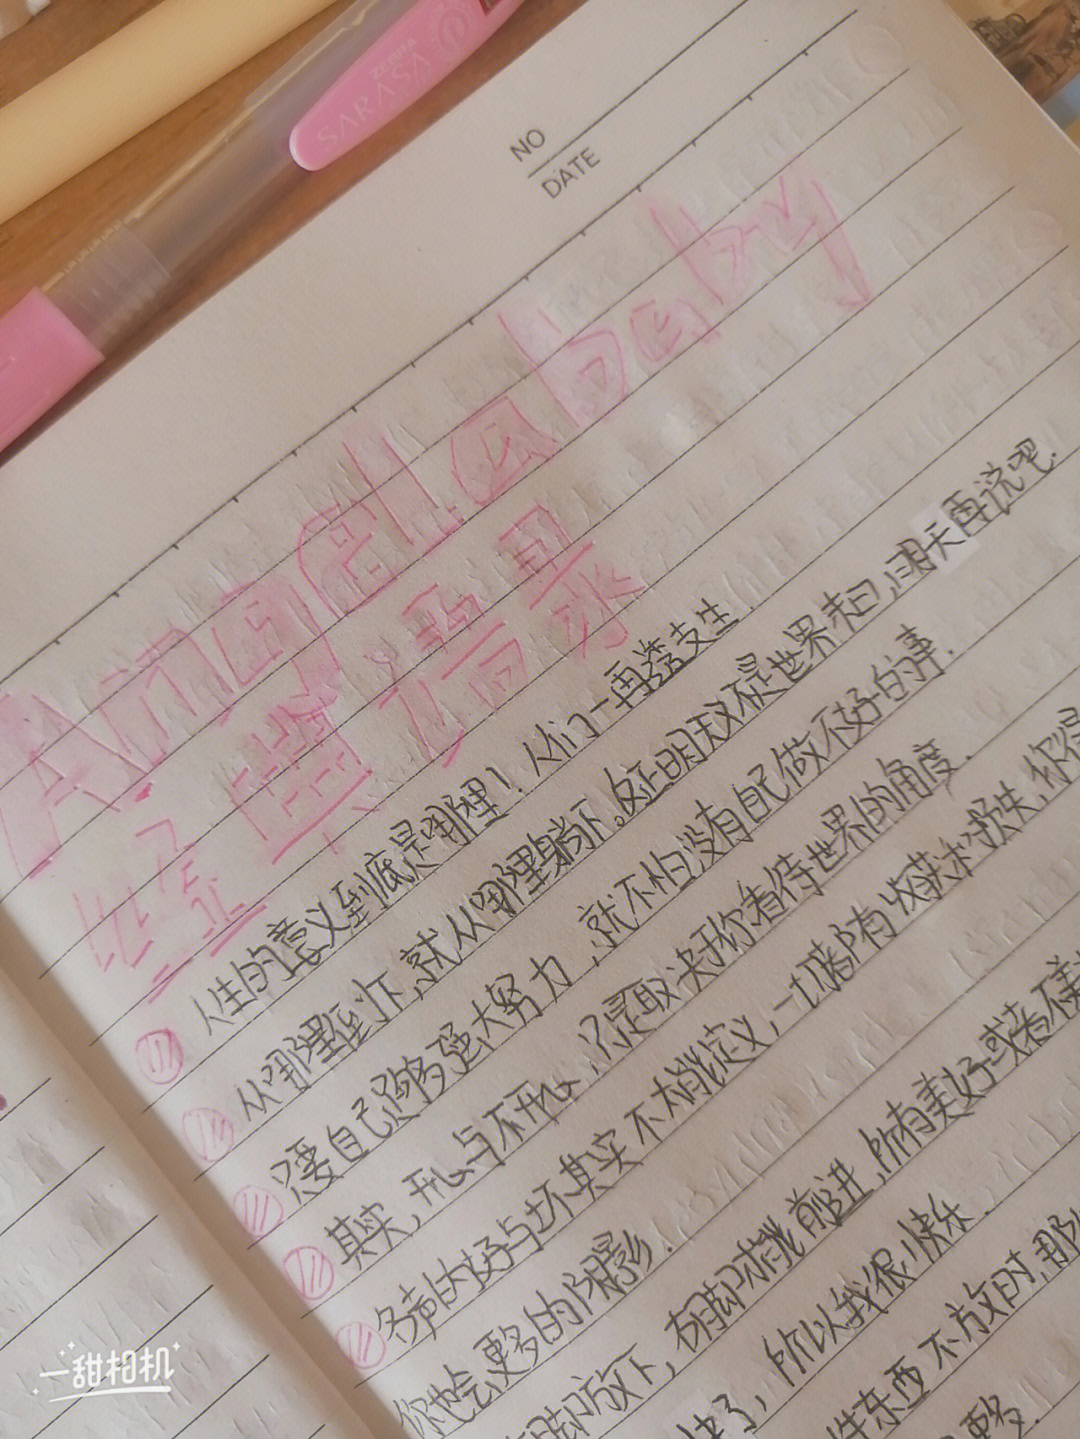 ZEBRA
SARASA
NO
DATE
Angelababy
经典语录
人生的意义到底是哪里！从们一再袭支生
从哪里到下，就从哪里躺下。反正明天又不是世界末日，明天再说吧.
只要自己足够强大努力，就不怕没有自己做不好的事.
其实，开心与不开心，只是取决于你看待世界的角度.
名声的好与坏其实不太能定义，一切都有收获和损失，你得
你也会更多的阴影.
脚放下，有脚才能前进，所有美好或者不美
快了，所以我很快乐.
件东西不放的时，那
更多.
一甜相机